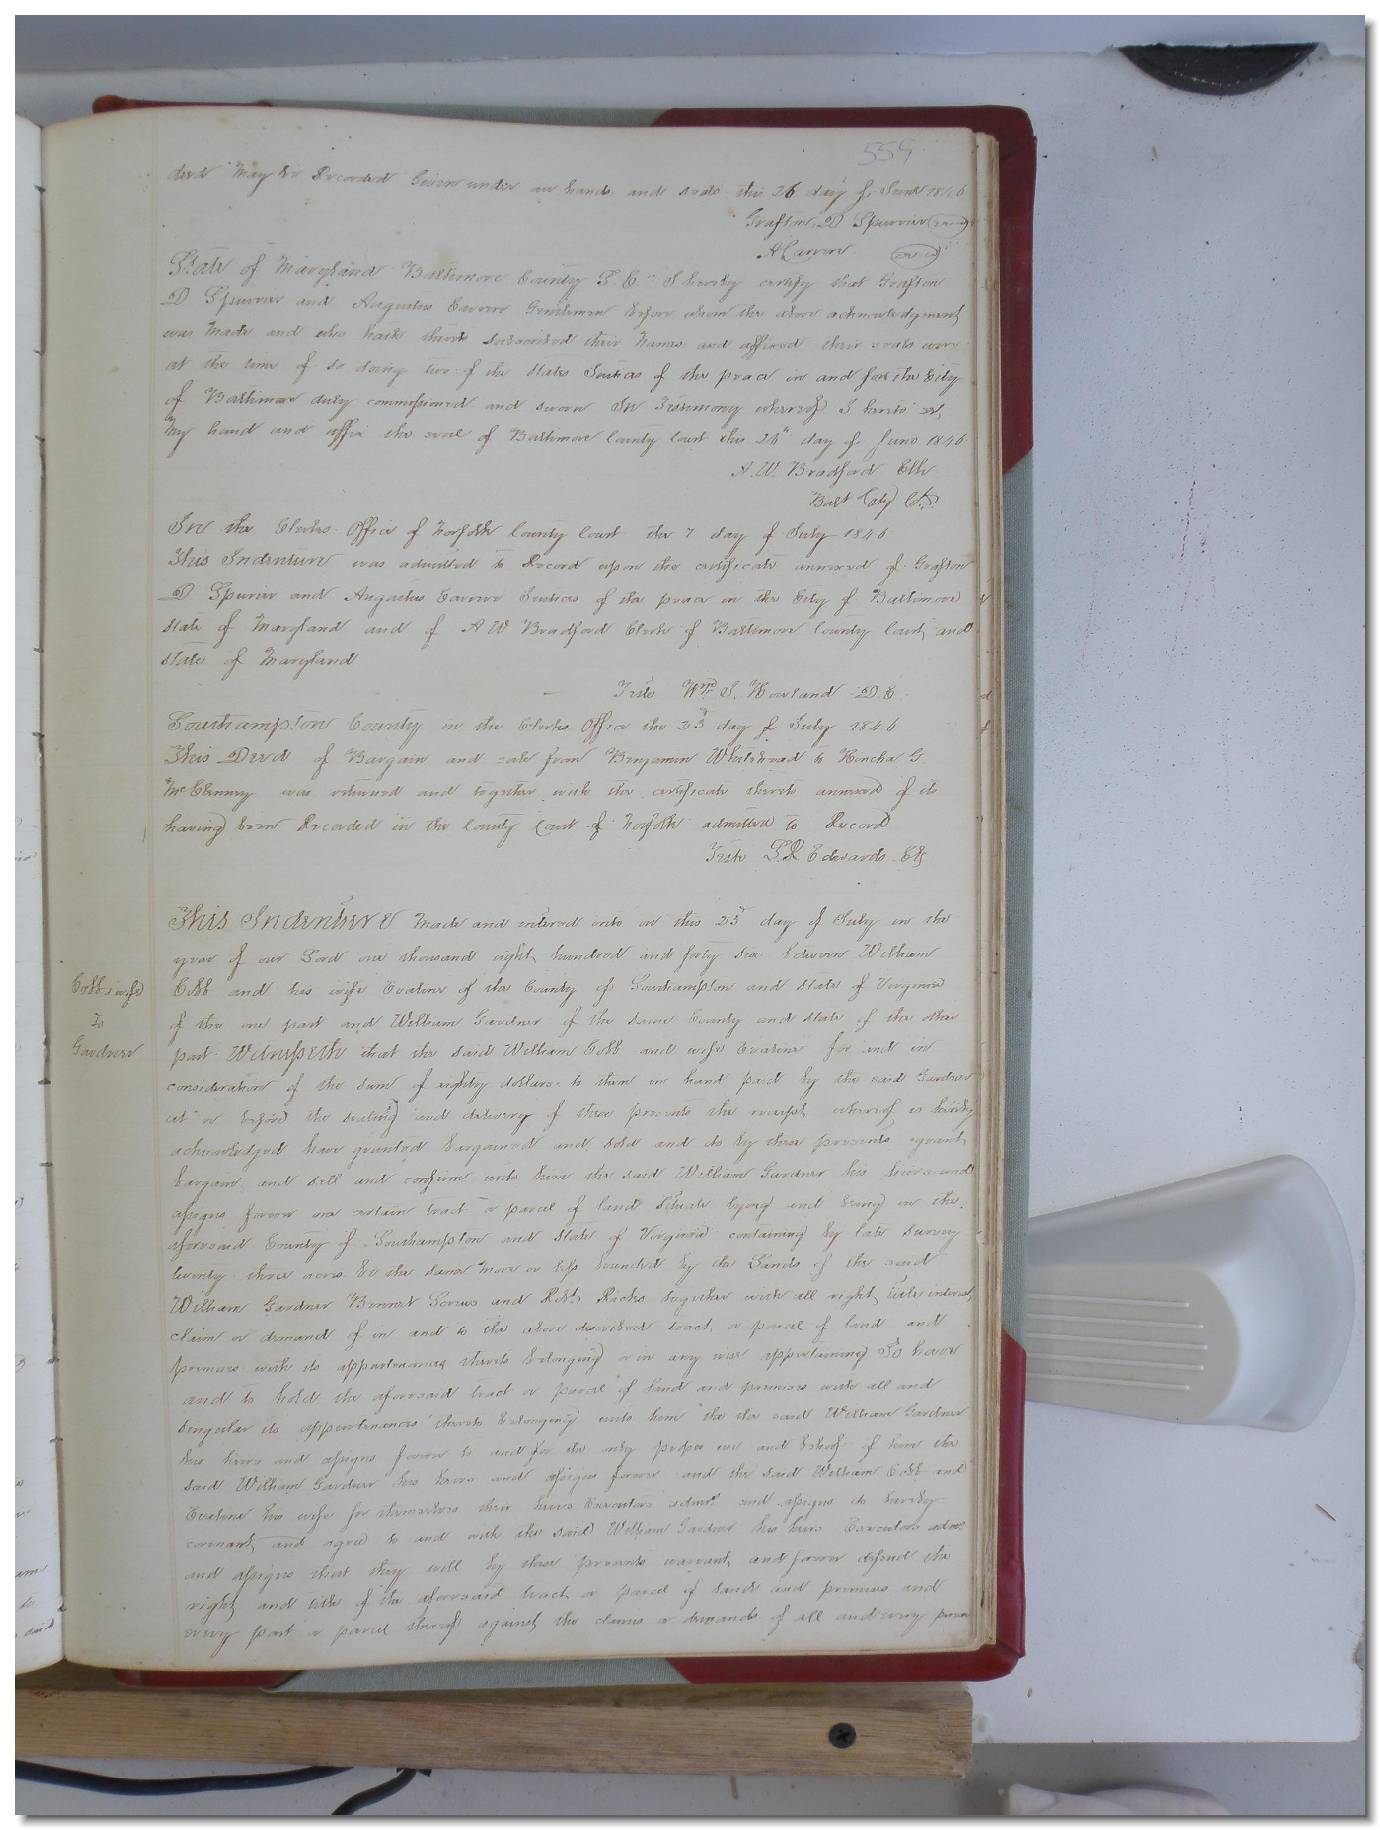 559
deed May be Recorded Given under our hands and seals this 26 day of June 1846
Grafton D Spurrier (seal)
A Carrer (seal)
State of Maryland Baltimore County S. C. I hereby certify that Grafton
D Spurrier and Augustus Carrer Gentlemen before whom the above acknowledgment
was made and who hath thereto subscribed their Names and affixed their seals were
at the time of so doing two of the States Justices of the peace in and for the City
of Baltimore duly commissioned and sworn In Testimony whereof I hereto set
My hand and affix the seal of Baltimore County Court this 26th day of June 1846
A. W. Bradford Clk
Balt Cty Ct
In the Clerks Office of Norfolk County Court the 7 day of July 1846
This Indenture was admitted to Record upon the certificate annexed of Grafton
D Spurier and Augustus Carrer Justices of the peace in the City of Baltimore
State of Maryland and of A W Bradford Clerk of Baltimore County Court and
State of Maryland
Teste Wm S. Howland D. C.
Southampton County in the Clerks Office the 23d day of July 1846
This Deed of Bargain and sale from Benjamin Whitehead to Hincha G
McClenney was returned and together with the certificate thereto annexed of its
having been Recorded in the County Court of Norfolk admitted to Record
Teste L R Edwards Clk
This Indenture Made and entered into on this 23d day of July in the
year of our Lord one thousand eight hundred and forty six between William
Cobb & wife
To
Gardner
Cobb and his wife Evaline of the County of Southampton and State of Virginia
of the one part and William Gardner of the same County and State of the other
part Witnesseth that the said William Cobb and wife Evaline for and in
consideration of the sum of eighty dollars to them in hand paid by the said Gardner
at or before the sealing and delivery of these presents the receipt whereof is hereby
acknowledged have granted bargained and sold and do by these presents grant
bargain and sell and confirm unto him the said William Gardner his heirs and
assigns forever one certain tract or parcel of land situate lying and being in the
aforesaid County of Southampton and State of Virginia containing by late survey
twenty three acres be the same more or less bounded by the Lands of the said
William Gardner Bennet and Robt Ricks together with all right title interest
claim or demand of in and to the above described tract or parcel of land and
premises with its appurtenances thereto belonging or in any wise appertaining To have
and to hold the aforesaid tract or parcel of land and premises with all and
singular its appurtenances thereto belonging unto him the the said William Gardner
his heirs and assigns forever to and for the only proper use and behoof of him the
said William Gardner his heirs and assigns forever and the said William Cobb and
Evaline his wife for themselves their heirs Executors admrs and assigns do hereby
covenant and agree to and with the said William Gardner his heirs Executors admrs
and assigns that they will by these presents warrant and forever defend the
right and title of the aforesaid tract or parcel of land and premises and
every part or parcel thereof against the claims or demands of all and every person